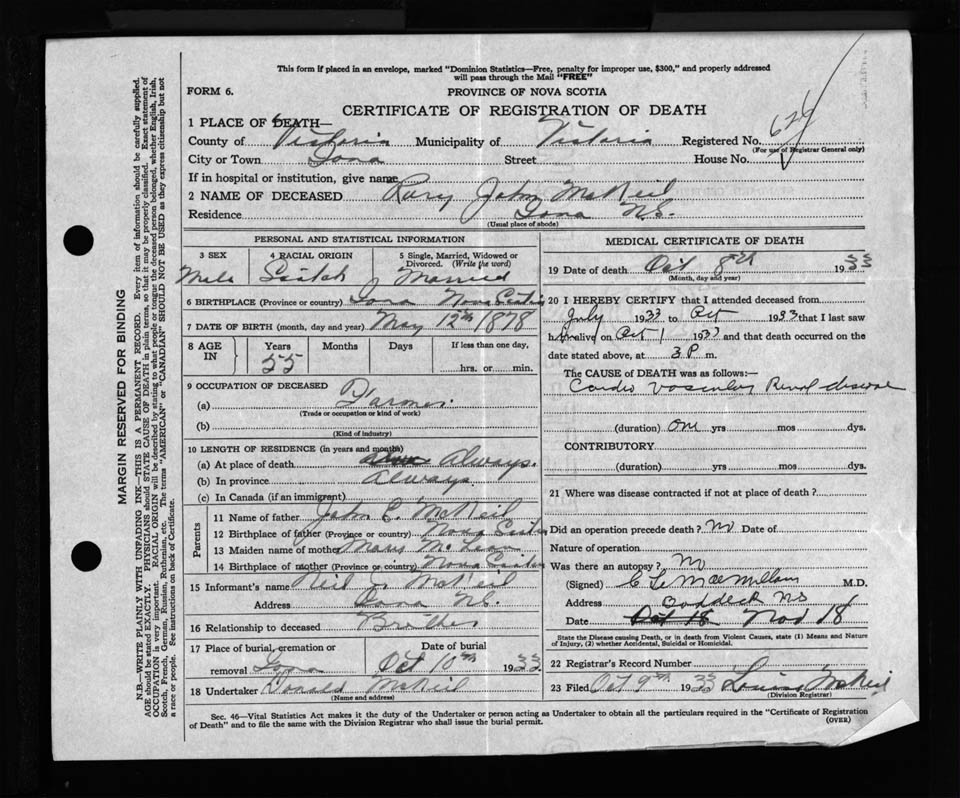 This form if placed in an envelope, marked "Dominion Statistics—Free, penalty for improper use, $300," and properly addressed
will pass through the Mail "FREE"
FORM 6.
PROVINCE OF NOVA SCOTIA
CERTIFICATE OF REGISTRATION OF DEATH
1 PLACE OF DEATH—
County of Victoria Municipality of Victoria Registered No. 
(For use of Registrar General only)
City or Town Iona Street House No.
If in hospital or institution, give name
2 NAME OF DECEASED Rory John McNeil
Residence Iona N.S.
(Usual place of abode)
PERSONAL AND STATISTICAL INFORMATION
3 SEX 4 RACIAL ORIGIN 5 Single, Married, Widowed or
Divorced. (Write the word)
Male Scotch Married
6 BIRTHPLACE (Province or country) Iona Nova Scotia
7 DATE OF BIRTH (month, day and year) May 12th 1878
8 AGE IN Years Months Days If less than one day,
55 hrs. or min.
9 OCCUPATION OF DECEASED
(a) Farmer
(Trade or occupation or kind of work)
(b)
(Kind of industry)
10 LENGTH OF RESIDENCE (in years and months)
(a) At place of death Always.
(b) In province Always.
(c) In Canada (if an immigrant)
Parents
11 Name of father John E. McNeil
12 Birthplace of father (Province or country) Nova Scotia
13 Maiden name of mother Mary McLean
14 Birthplace of mother (Province or country) Nova Scotia
15 Informant's name Neil J. McNeil
Address Iona N.S.
16 Relationship to deceased Brother
17 Place of burial, cremation or Date of burial
removal Iona Oct 10th 1933
18 Undertaker Donald McNeil
(Name and address)
MEDICAL CERTIFICATE OF DEATH
19 Date of death Oct 8th 1933
(Month, day and year)
20 I HEREBY CERTIFY that I attended deceased from
July 1933 to Oct 1933 that I last saw
him alive on Oct 1 1933 and that death occurred on the
date stated above, at 3 P m.
The CAUSE OF DEATH was as follows:—
Cardio vascular Renal disease
(duration) one yrs mos dys.
CONTRIBUTORY
(duration) yrs mos dys.
21 Where was disease contracted if not at place of death?
Did an operation precede death? No Date of
Nature of operation
Was there an autopsy? No
(Signed) C L MacMillan M.D.
Address Baddeck NS
Date Oct 18 Nov 18
State the Disease causing Death, or in death from Violent Causes, state (1) Means and Nature
of Injury, (2) whether Accidental, Suicidal or Homicidal.
22 Registrar's Record Number
23 Filed Oct 9th 1933 Louise McNeil
(Division Registrar)
Sec. 46—Vital Statistics Act makes it the duty of the Undertaker or person acting as Undertaker to obtain all the particulars required in the "Certificate of Registration
of Death" and to file the same with the Division Registrar who shall issue the burial permit. (OVER)
MARGIN RESERVED FOR BINDING
N.B.—WRITE PLAINLY WITH UNFADING INK—THIS IS A PERMANENT RECORD. Every item of information should be carefully supplied.
AGE should be stated EXACTLY. PHYSICIANS should STATE CAUSE OF DEATH in plain terms, so that it may be properly classified. Exact statement of
OCCUPATION is very important. RACIAL ORIGIN will be described by stating to what people or tongue the deceased person belonged, whether English, Irish,
Scotch, French, German, Russian, Ruthenian, etc. The terms "AMERICAN" or "CANADIAN" SHOULD NOT BE USED as they express citizenship but not
a race or people. See instructions on back of Certificate.